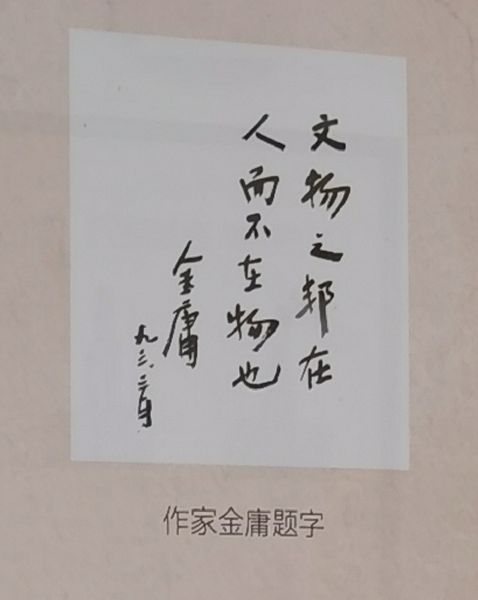 文物之邦在
人而不在物也
金庸
九三.三月
作家金庸题字